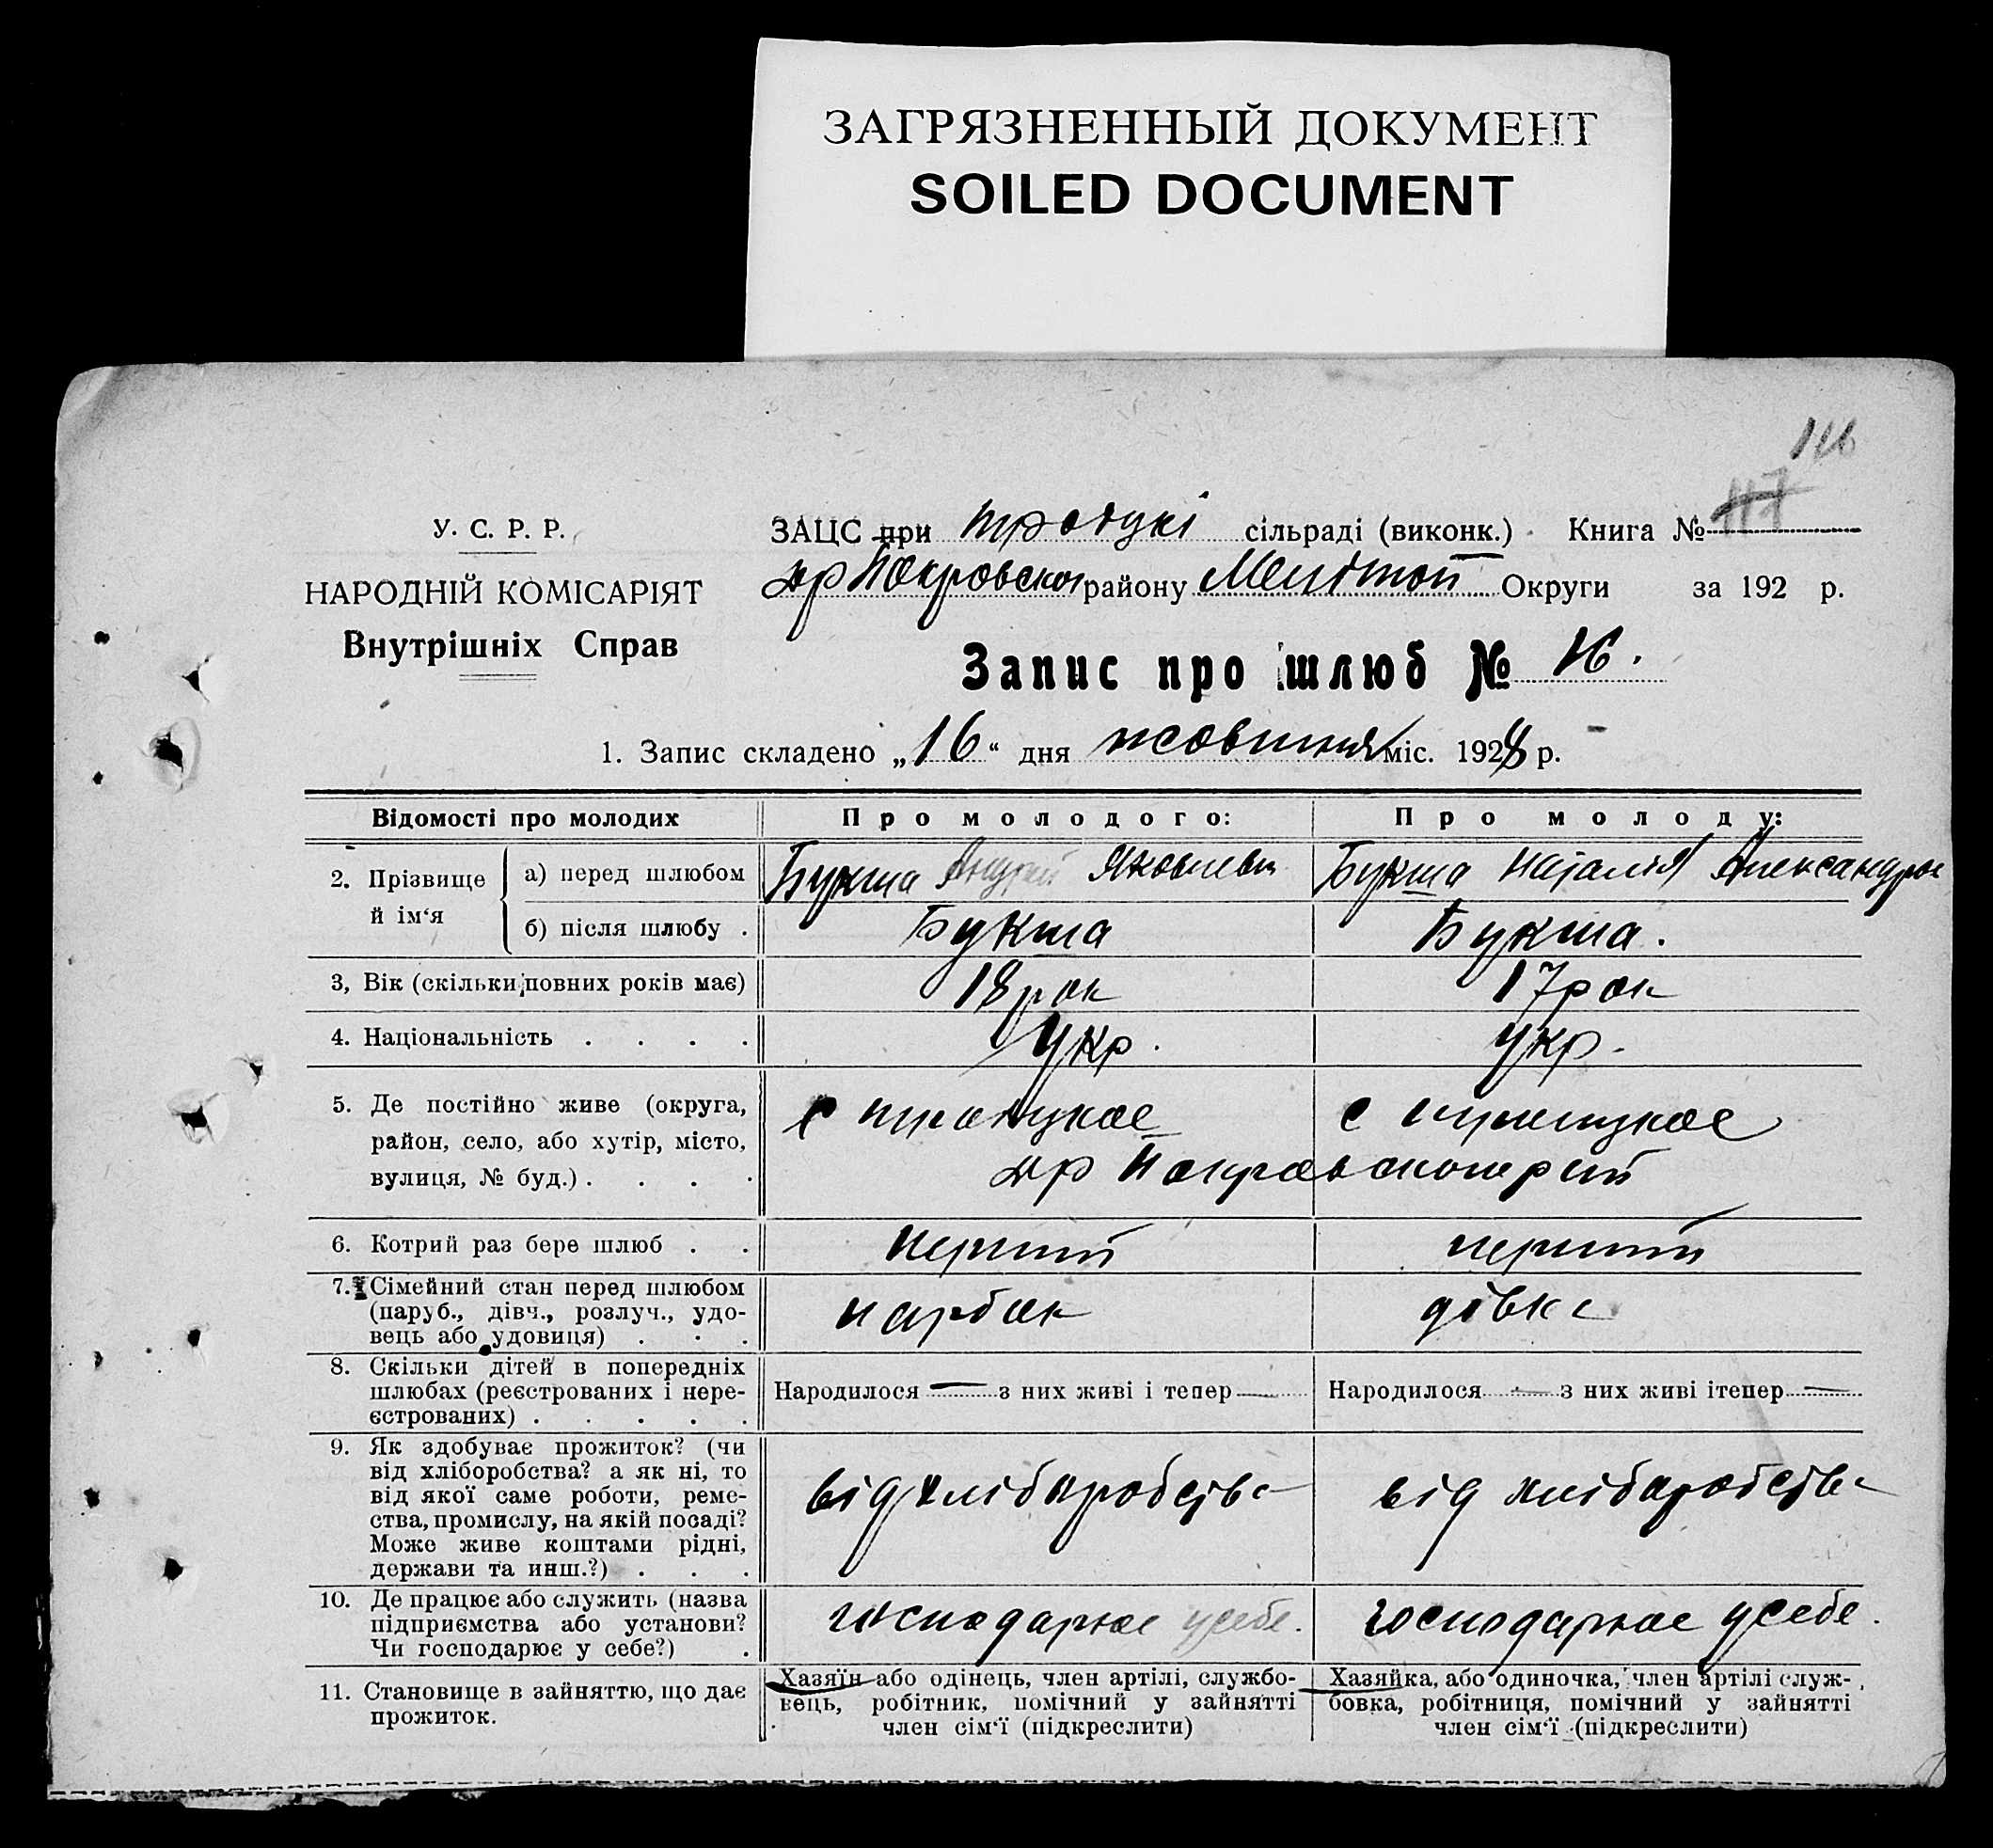 ЗАГРЯЗНЕННЫЙ ДОКУМЕНТ
SOILED DOCUMENT
116
117
У. С. Р. Р.
НАРОДНІЙ КОМІСАРІЯТ
Внутрішніх Справ
ЗАЦС при сільраді (виконк.) Книга №
Покровског району Округи за 192 р.
Запис про шлюб № 16.
1. Запис складено „16“ дня жовтня міс. 1928 р.
Відомості про молодих Про молодого: Про молоду:
2. Прізвище й ім‘я
а) перед шлюбом Букша Андрей Яковлевич Букша Наталія Александров
б) після шлюбу . Букша Букша.
3, Вік (скільки повних років має) 18 рок 17 рок
4. Національність . . . . Укр. укр.
5. Де постійно живе (округа, район, село, або хутір, місто, вулиця, № буд.) . . . . с троицкое с троицкое
6. Котрий раз бере шлюб . . перший перший
7. Сімейний стан перед шлюбом (паруб., дівч., розлуч., удовець або удовиця) . . . парбок дівка
8. Скільки дітей в попередніх шлюбах (реєстрованих і нереєстрованих) . . . . . Народилося — з них живі і тепер — Народилося — з них живі ітепер —
9. Як здобуває прожиток? (чи від хліборобства? а як ні, то від якої саме роботи, ремества, промислу, на якій посаді? Може живе коштами рідні, держави та инш.?) . . . від хліборобства від хліборобства
10. Де працює або служить (назва підприємства або установи? Чи господарює у себе?) . господарює у себе. господарює у себе.
11. Становище в зайняттю, що дає прожиток. Хазяїн або одінець, член артілі, службовець, робітник, помічний у зайнятті член сім‘ї (підкреслити) Хазяйка, або одиночка, член артілі службовка, робітниця, помічний у зайнятті член сім‘ї (підкреслити)